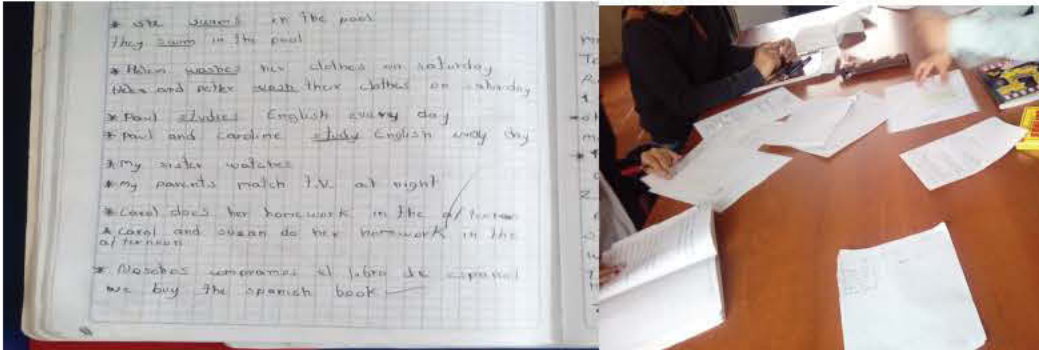 * she swims in the pool
They swim in the pool
* Helen washes her clothes on saturday
Helen and peter wash their clothes on saturday
* Paul studies English every day
* paul and caroline study English every day
* my sister watches
* my parents match T.V. at night
* carol does her homework in the
* carol and susan do her homework in the
afternoon
* Nosotros compramos el libro de español
we buy the spanish book